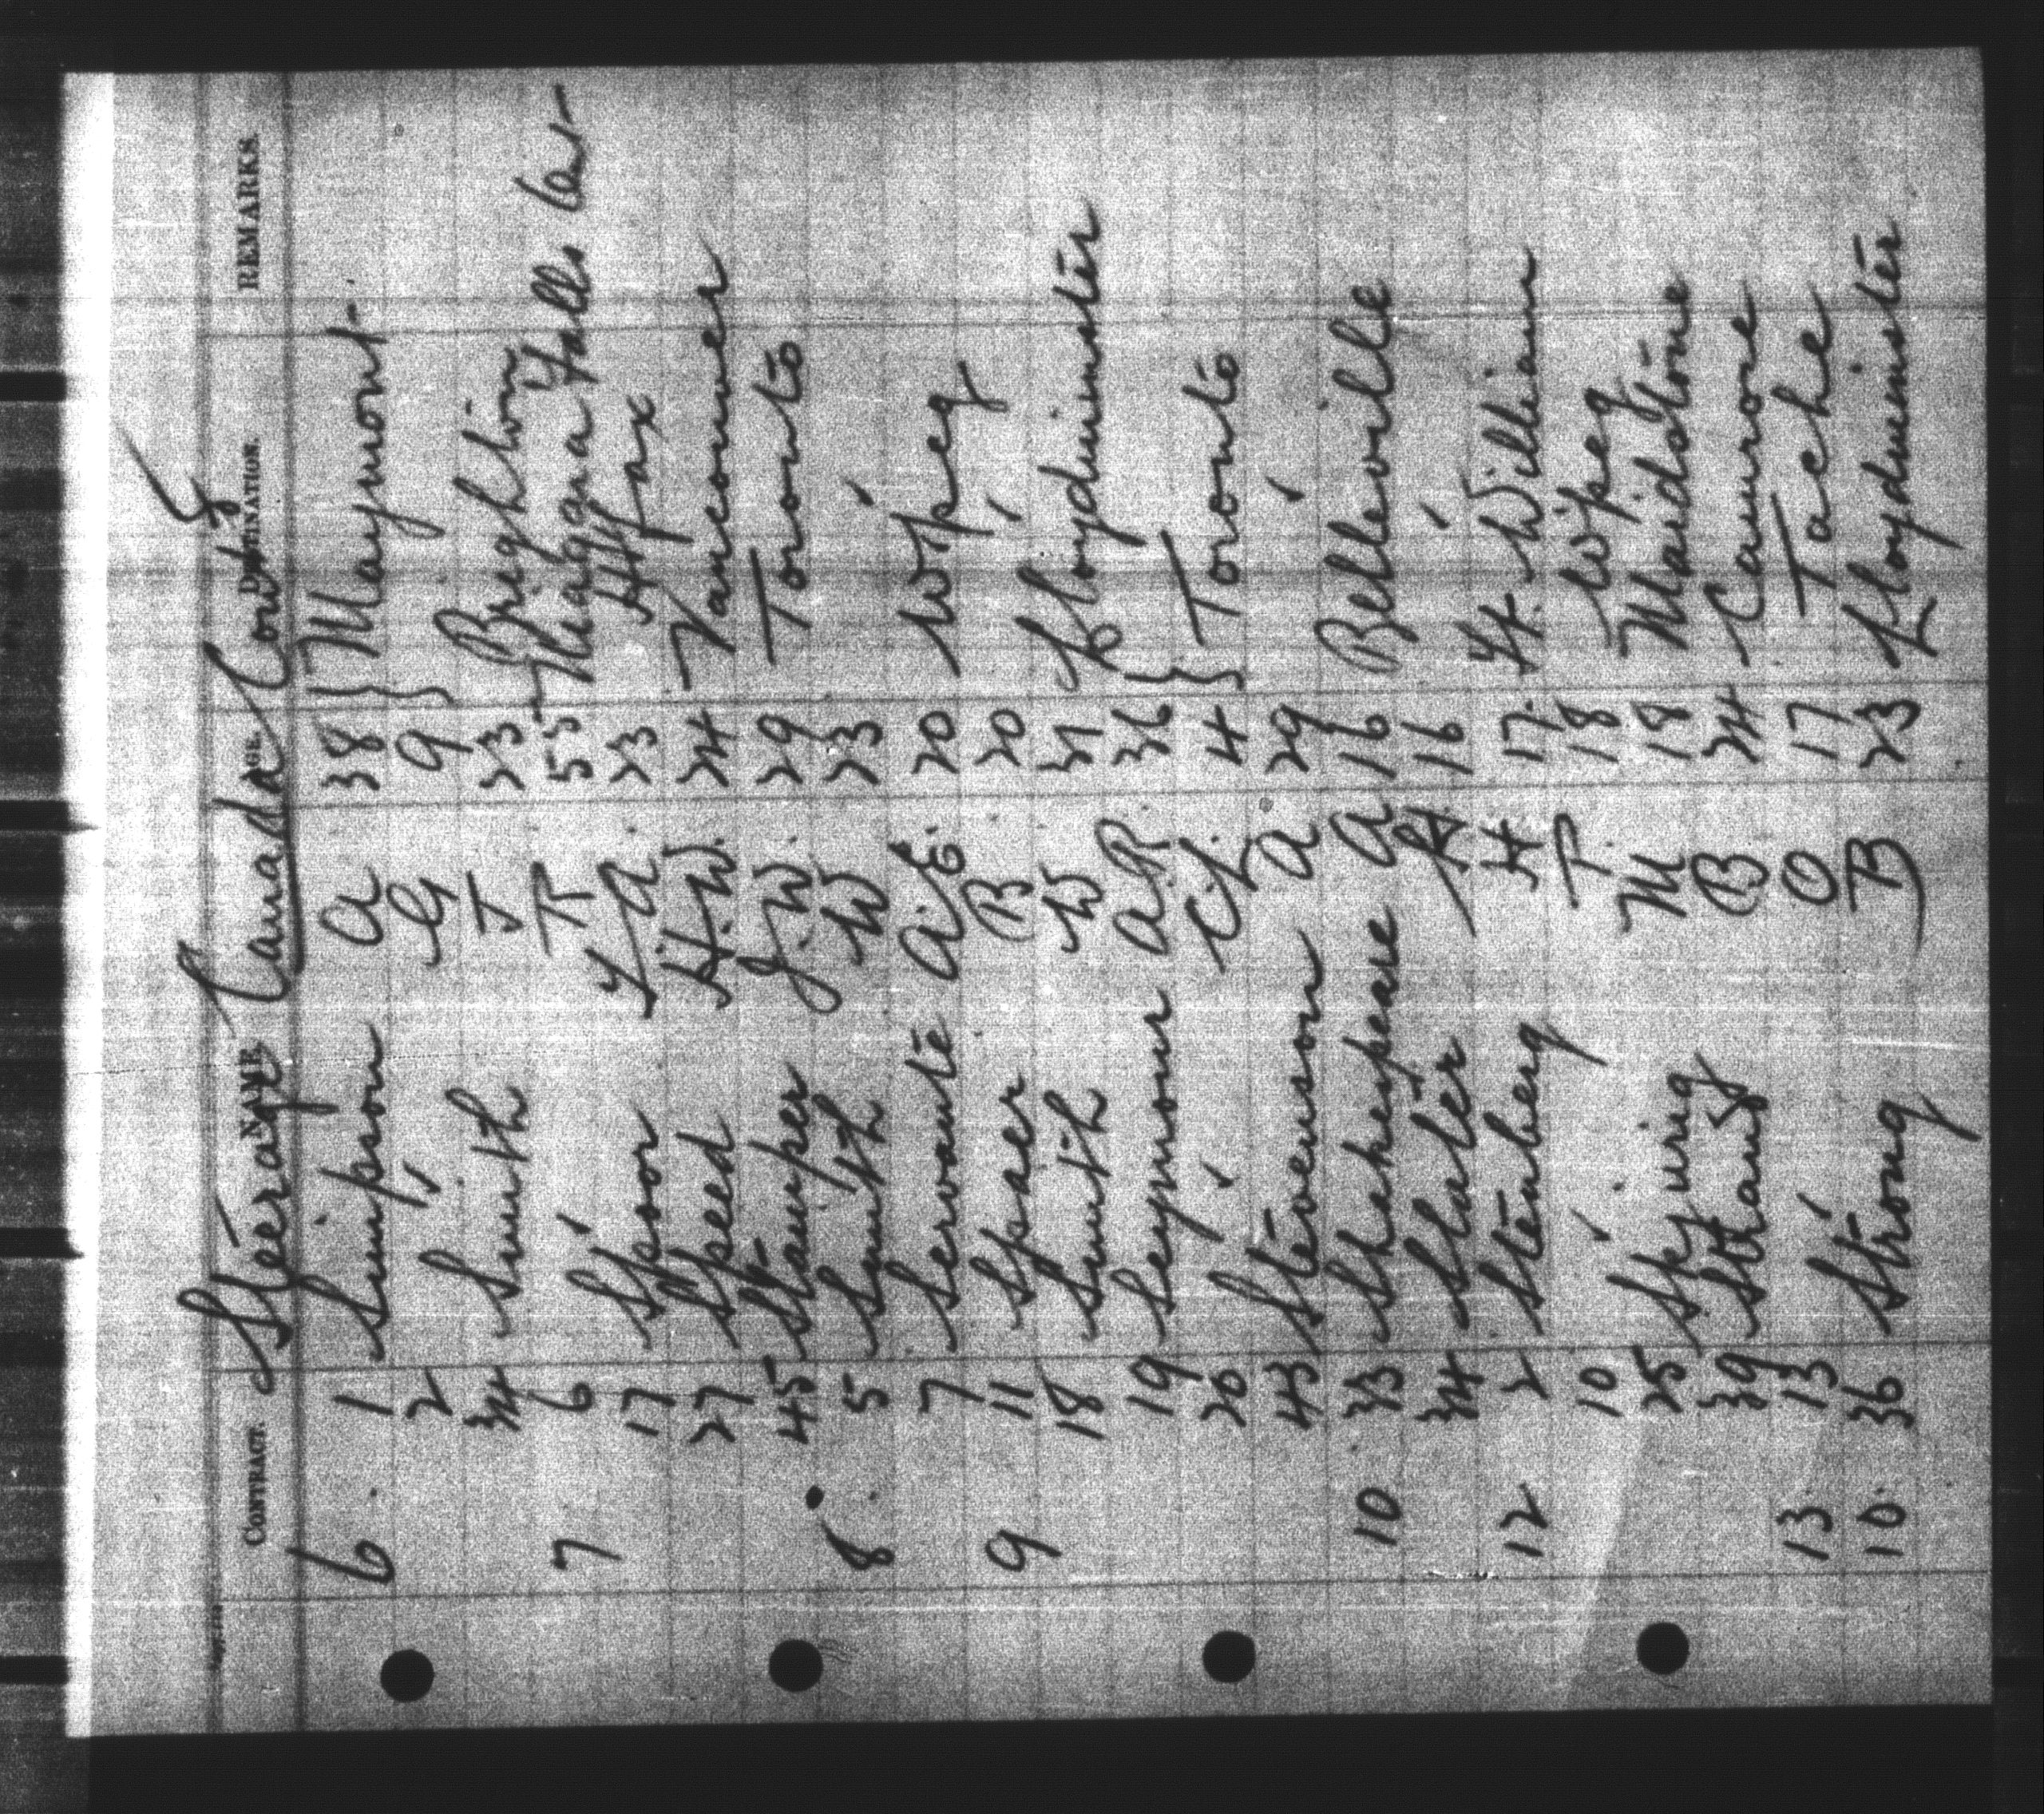 S
Steerage Canada Cont
CONTRACT. NAME AGE DESTINATION. REMARKS.
6 1 Simpson A 38 } Maymont
2 " G 9 }
34 Smith J 23 Brighton
7 6 " R 55 Niagara Falls Car
17 Spoor F A. 23 Hfax
27 Speed H.W. 24 Vancouver
45 Stamper J.W. 29 Toronto
8 5 Smith W 23 "
7 Servante A.E. 20 Wpeg
9 11 Spaer B 20 "
18 Smith W 37 Lloydminster
19 Seymour A.R. 36 } Toronto
20 " C.L. 4 }
43 Stevenson A 29 "
10 33 Shakespeare A 16 Belleville
34 Slater H 16 "
12 2 Stenberg H 17 Ft. William
10 " P 18 Wpeg
25 Skjurig M 18 Maidstone
39 Strang B 24 Camrose
13 13 " O 17 Tache
10 36 Strong B 23 Lloydminster